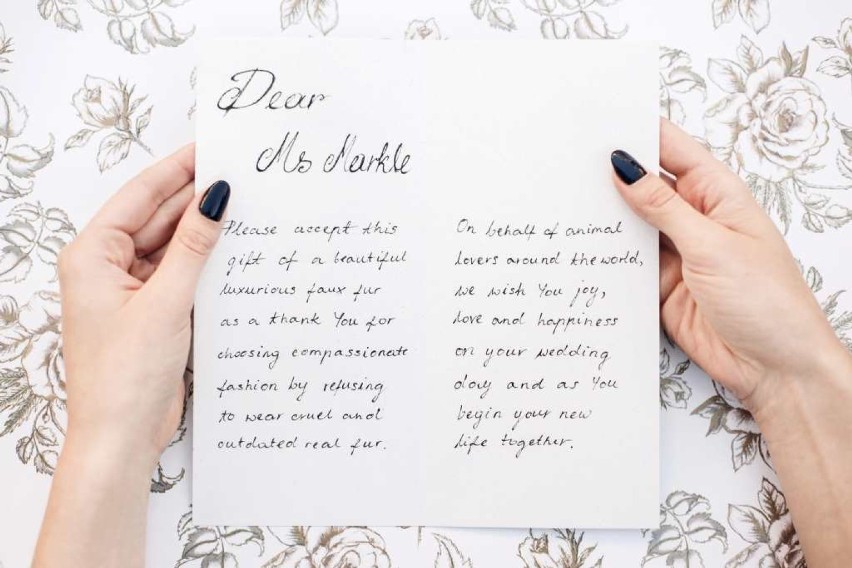 Dear
Ms Markle
Please accept this
gift of a beautiful
luxurious faux fur
as a thank You for
choosing compassionate
fashion by refusing
to wear cruel and
outdated real fur.
On behalf of animal
lovers around the world,
we wish You joy,
love and happiness
on your wedding
day and as You
begin your new
life together.